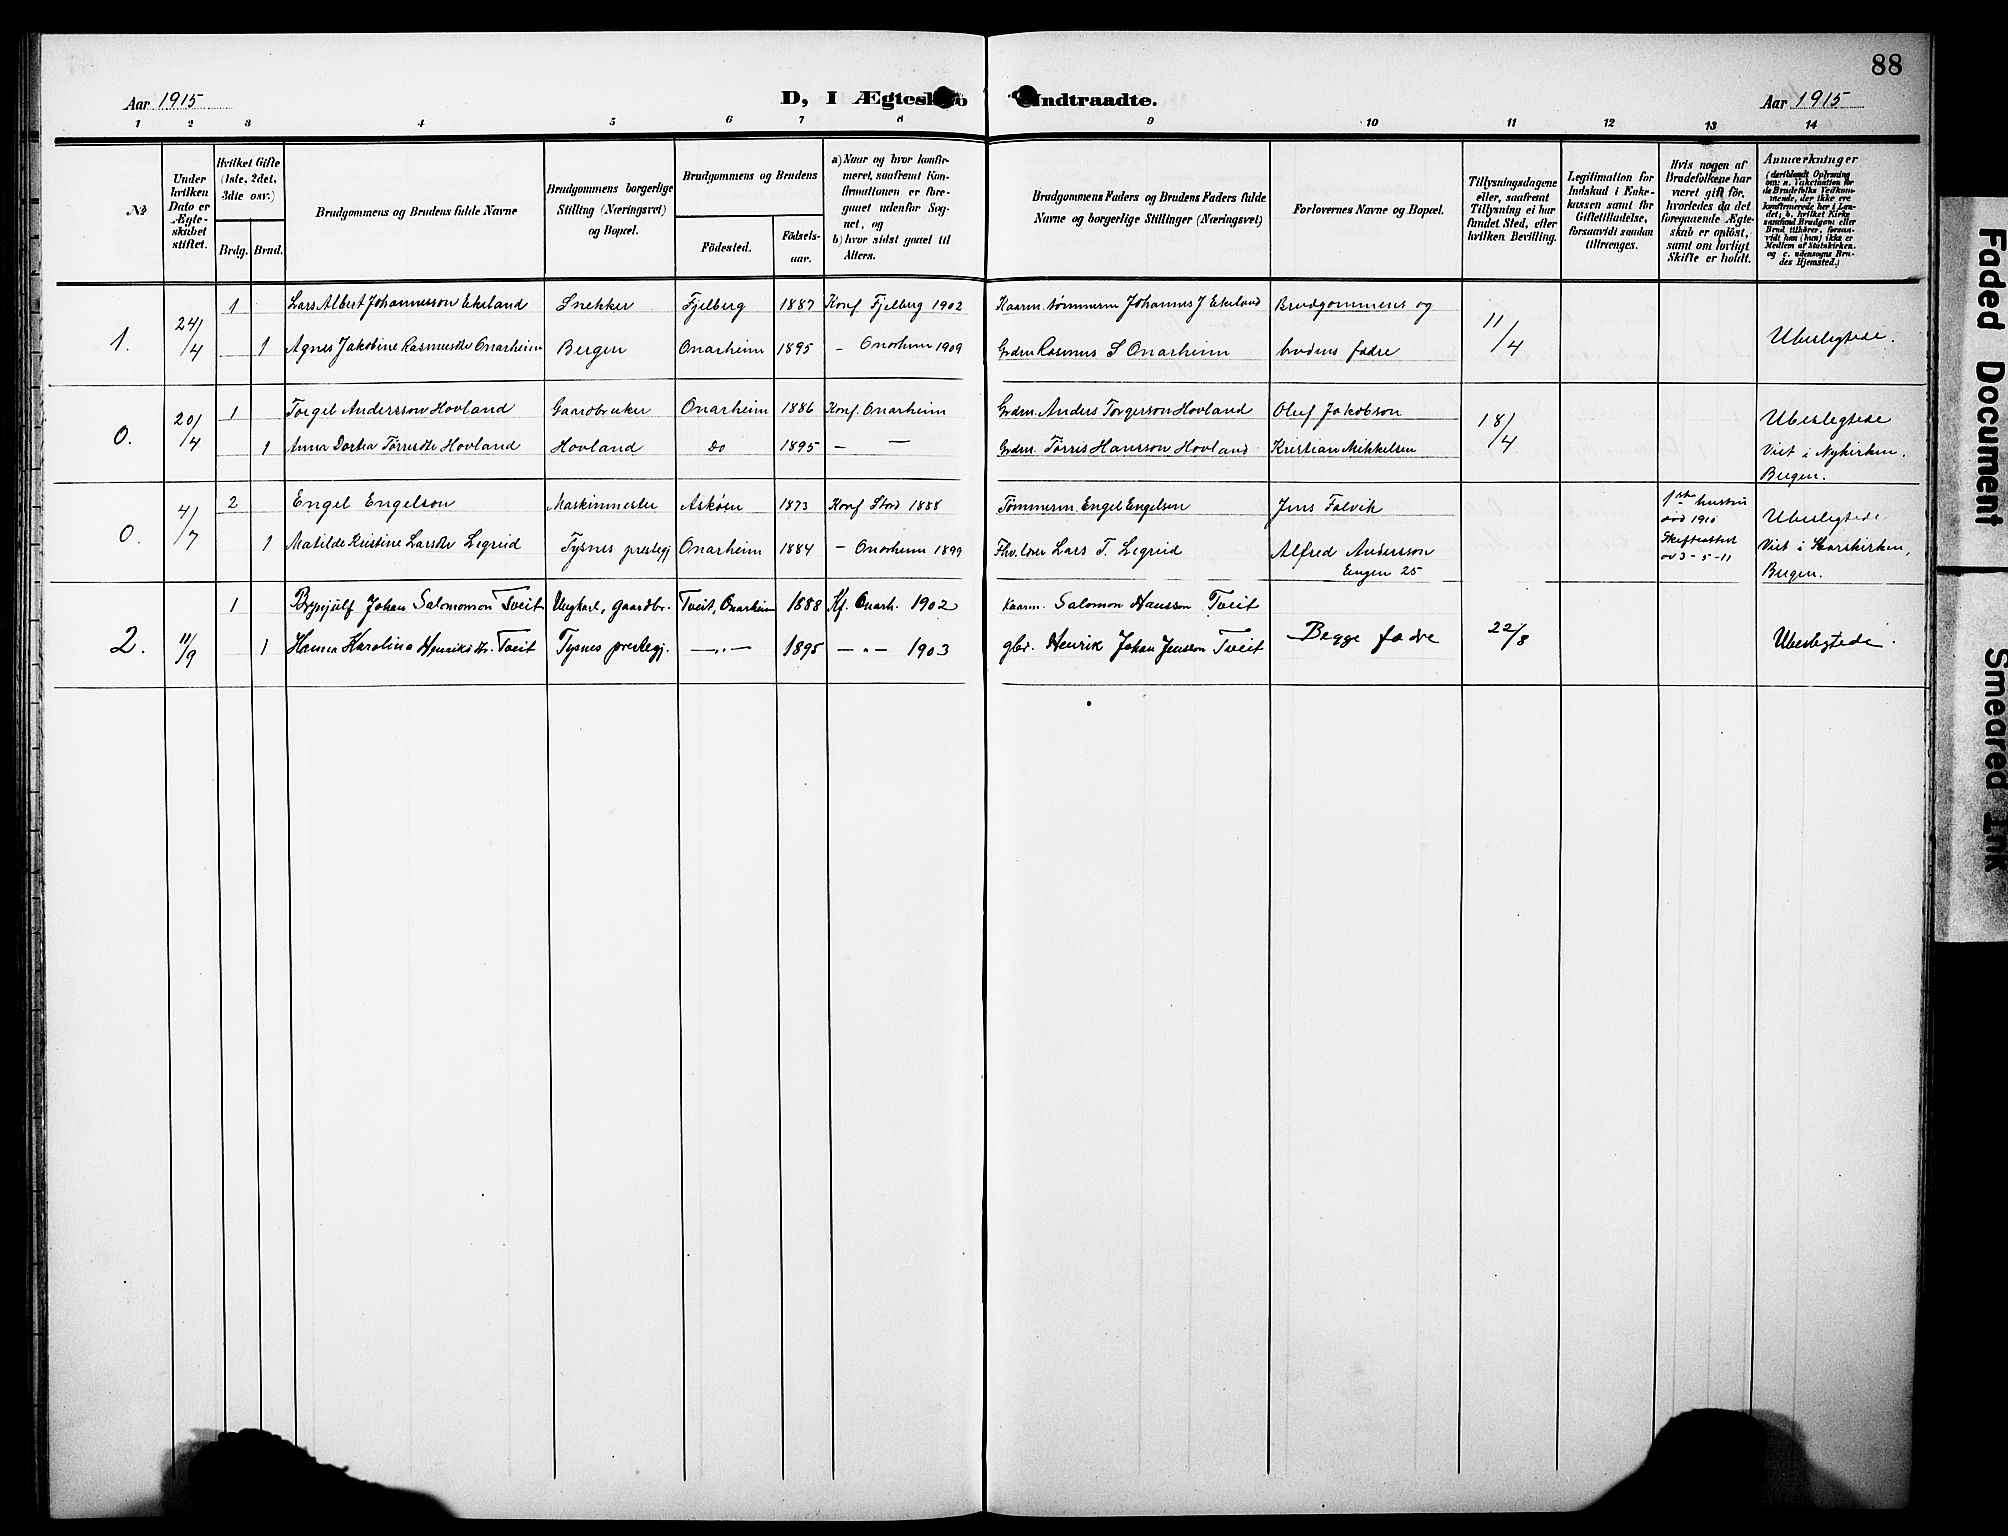 88
Aar 1915
D, I Ægteskab Indtraadte.
Aar 1915
1 2 3 4 5 6 7 8 9 10 11 12 13 14
№
Under hvilken Dato er Ægteskabet stiftet.
Hvilket Gifte (1ste, 2det, 3die osv.)
Brdg. Brud.
Brudgommens og Brudens fulde Navne
Brudgommens borgerlige Stilling (Næringsvei) og Bopæl.
Brudgommens og Brudens
Födested.
Födselsaar.
a) Naar og hvor konfirmeret, saafremt Konfirmationen er foregaaet udenfor Sognet, og
b) hvor sidst gaaet til Alters.
Brudgommens Faders og Brudens Faders fulde Navne og borgerlige Stillinger (Næringsvei)
Forlovernes Navne og Bopæl.
Tillysningsdagene eller, saafremt Tillysning ei har fundet Sted, efter hvilken Bevilling.
Legitimation for Indskud i Enkekassen samt for Giftetilladelse, forsaavidt saadan tiltrænges.
Hvis nogen af Brudefolkene har været gift för, hvorledes da det foregaaende Ægteskab er oplöst, samt om lovligt Skifte er holdt.
Anmærkninger (deriblandt Oplysning om: a. Vakcination for de Brudefolks Vedkommende, der ikke ere konfirmerede her i Landet; b. hvilket Kirkesamfund Brudgom eller Brud tilhörer, forsaavidt han (hun) ikke er Medlem af Statskirken, og c. udensogns Brudes Hjemsted.)
1. 24/4 1 Lars Albert Johannesson Ekeland Snekker Fjelberg 1887 Konf Fjelberg 1902 Kaarm. tømmerm Johannes J Ekeland Brudgommens og 11/4 Ubeslegtede.
1 Agnes Jakobine Rasmusdtr Onarheim Bergen Onarheim 1895 - Onarheim 1909 Grdm Rasmus S Onarheim brudens fædre
0. 20/4 1 Torgel Andersson Hovland Gaardbruker Onarheim 1886 Konf. Onarheim Grdm. Anders Torgerson Hovland Oluf Jakobson 18/4 Ubeslegtede
1 Anna Dortea Tørresdtr Hovland Hovland Do 1895 - — Grdm. Tørris Hansson Hovland Kristian Mikkelsen Viet i Nykirken, Bergen.
0. 4/7 2 Engel Engelson Maskinmester Askøen 1873 Konf Stord 1888 Tømmerm. Engel Engelsen Jens Folvik 1ste hustru død 1910 Ubeslegtede
1 Matilde Kristine Larsdtr Legrid Tysnes prestegj Onarheim 1884 - Onarheim 1899 Fhv. lærer Lars T. Legrid Alfred Andersson Engen 25 Skifteattest av 3-5-11 Viet i Korskirken, Bergen.
2. 11/9 1 Brynjulf Johan Salomonson Tveit Ungkarl, gaardbr. Tveit, Onarheim 1888 Kf. Onarh. 1902 Kaarm. Salomon Hansson Tveit Begge fædre 22/8 Ubeslegtede.
1 Hanna Karolina Henriksdtr. Tveit Tysnes prestegj. —"— 1895 —"— 1903 gbr. Henrik Johan Jensson Tveit
Faded Document
Smeared Ink